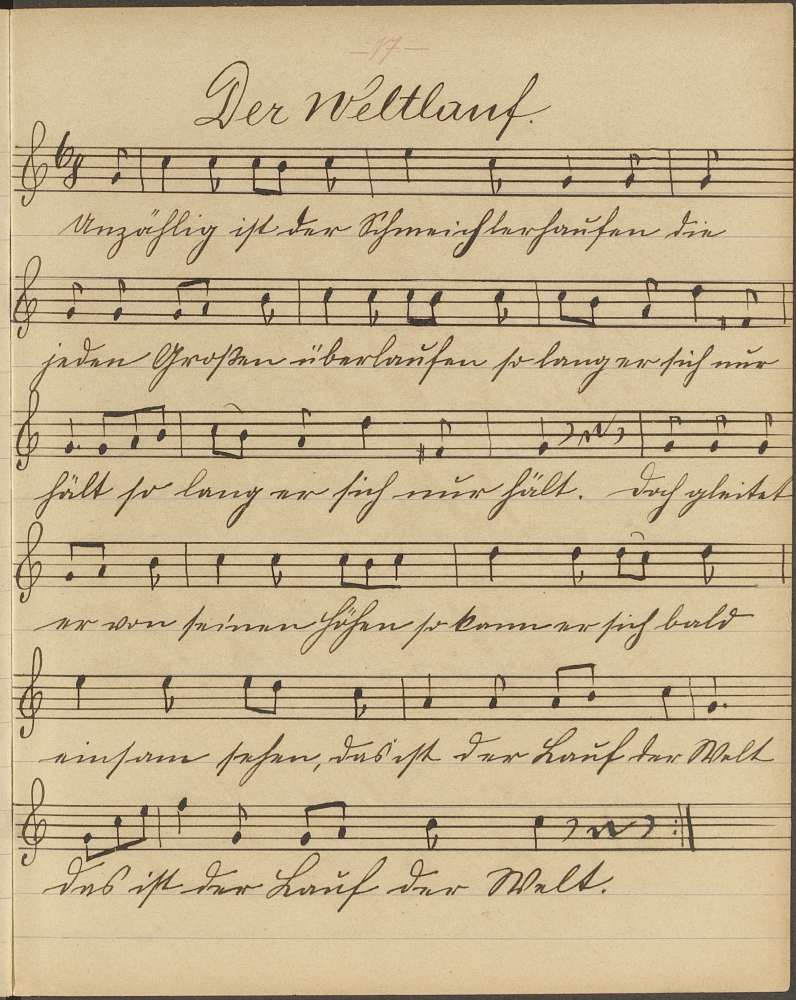 – 17 –
Der Weltlauf.
Unzählig ist der Schmeichlerhaufen die
jeden Großen überlaufen so lang er sich nur
hält so lang er sich nur hält. Doch gleitet
er von seinen Höhen so kann er sich bald
einsam sehen, das ist der Lauf der Welt
das ist der Lauf der Welt.